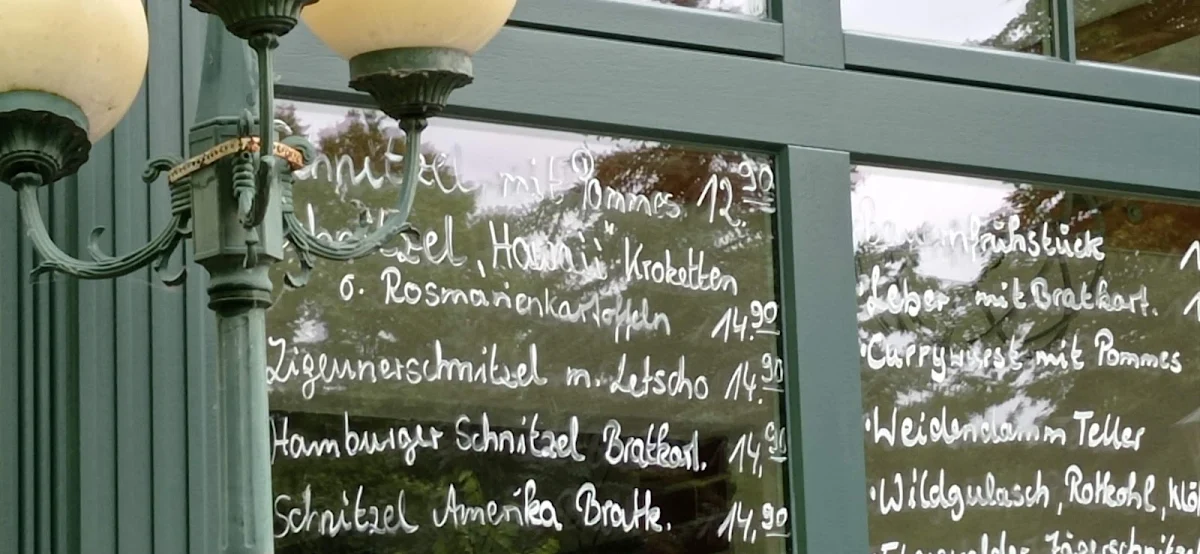 Schnitzel mit Pommes 12.90
Schnitzel "Hawaii" Kroketten
o. Rosmarienkartoffeln 14.90
Zigeunerschmitzel m. Letscho 14.90
Hamburger Schnitzel Bratkart. 14.90
Schnitzel Amerika Bratk. 14.90
Bauernfrühstück
Leber mit Bratkart.
Currywurst mit Pommes
Weidendamm Teller
Wildgulasch, Rotkohl, Klö
Jägerschnitze